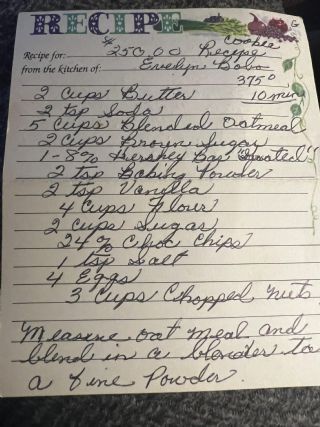 RECIPE
Recipe for: $250.00 Cookie Recipe
from the kitchen of: Evelyn Bobo
375°
10 min
2 Cups Butter
2 tsp Soda
5 Cups Blended Oatmeal
2 Cups Brown Sugar
1-8 oz Hershey Bar "Grated"
2 tsp Baking Powder
2 tsp Vanilla
4 Cups Flour
2 Cups Sugar
24 oz Choc Chips
1 tsp Salt
4 Eggs
3 Cups Chopped Nuts
Measure oat meal and
blend in a blender to
a fine Powder.